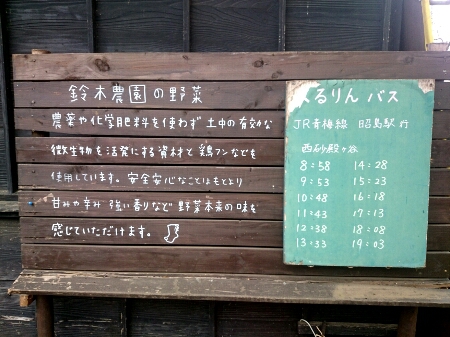 鈴木農園の野菜
農薬や化学肥料を使わず 土中の有効な
微生物を活発にする資材と 鶏フンなどを
使用しています。安全安心なことはもとより
甘みや辛み 強い香りなど 野菜本来の味を
感じていただけます。
くるりん バス
JR青梅線 昭島駅行
西砂殿ヶ谷
8:58 14:28
9:53 15:23
10:48 16:18
11:43 17:13
12:38 18:08
13:33 19:03